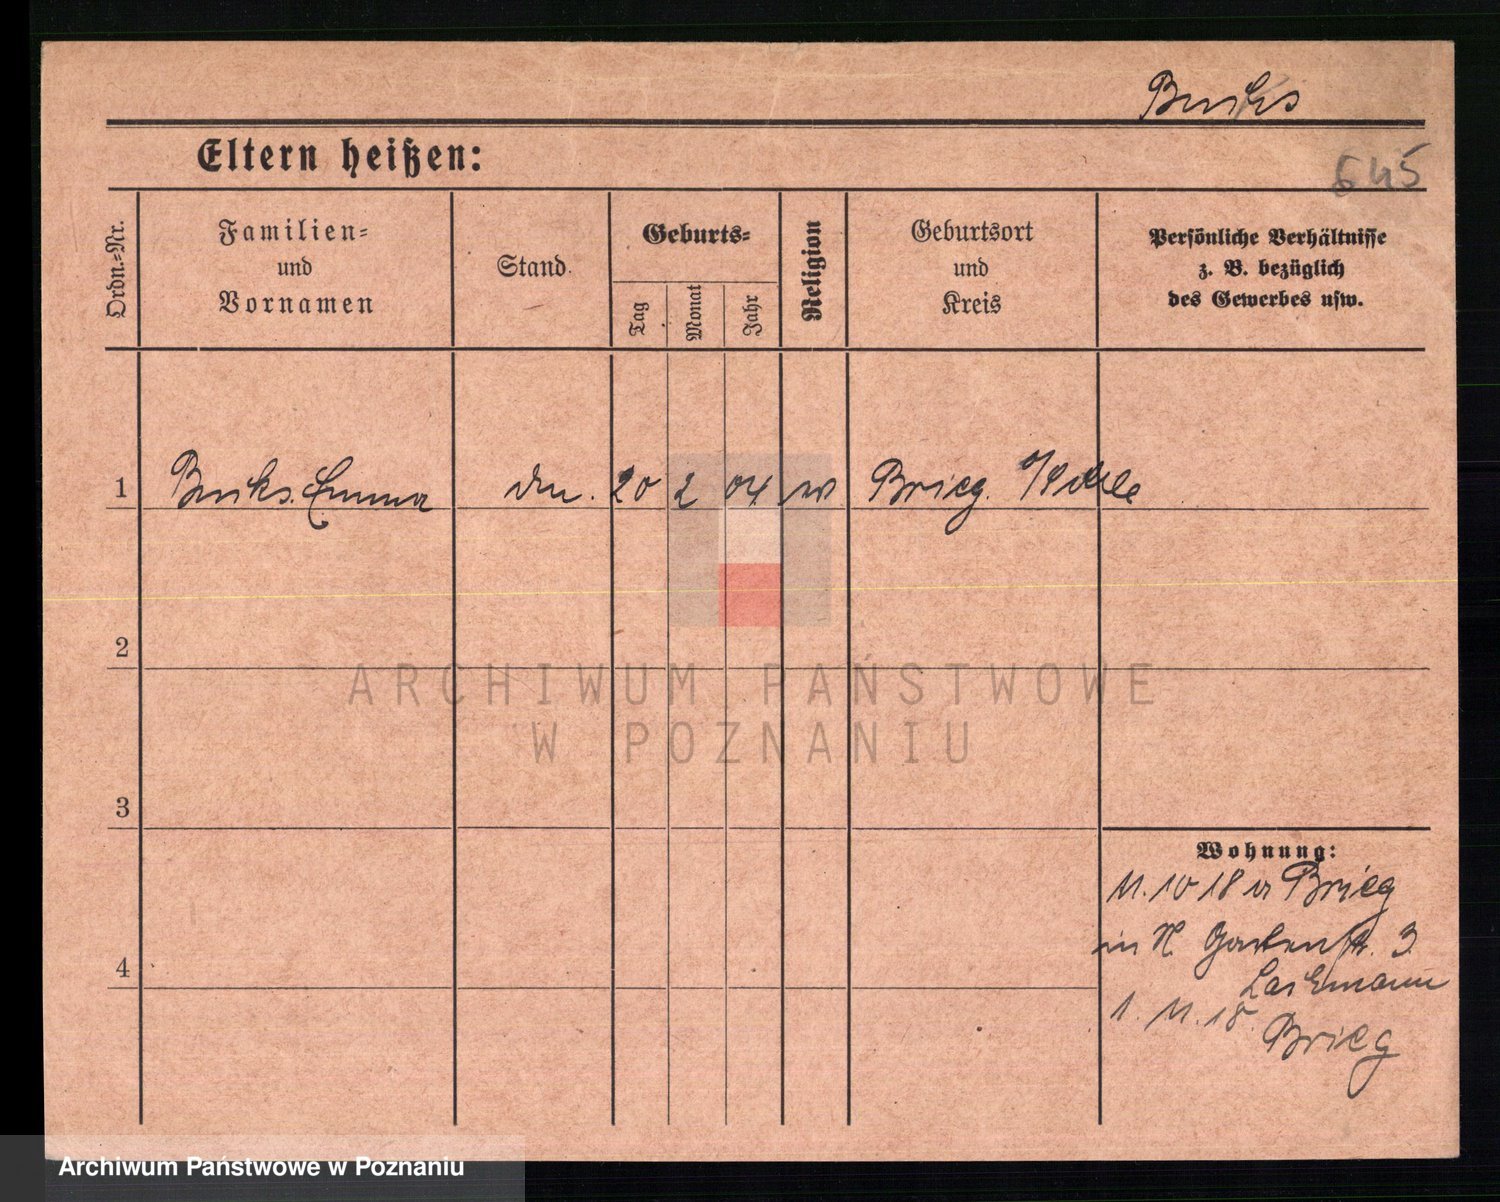 Bucks
645
Eltern heißen:
Ordn.-Nr.
Familien-
und
Vornamen
Stand
Geburts-
Tag
Monat
Jahr
Religion
Geburtsort
und
Kreis
Persönliche Verhältnisse
z. B. bezüglich
des Gewerbes usw.
1 Bucks. Emma 20 2 04 Brieg.
2
3
4
Wohnung:
11. 10 18 v Brieg
in H Gartenstr. 3.
Lachmann
1. 11. 18. Brieg
ARCHIWUM PAŃSTWOWE
W POZNANIU
Archiwum Państwowe w Poznaniu